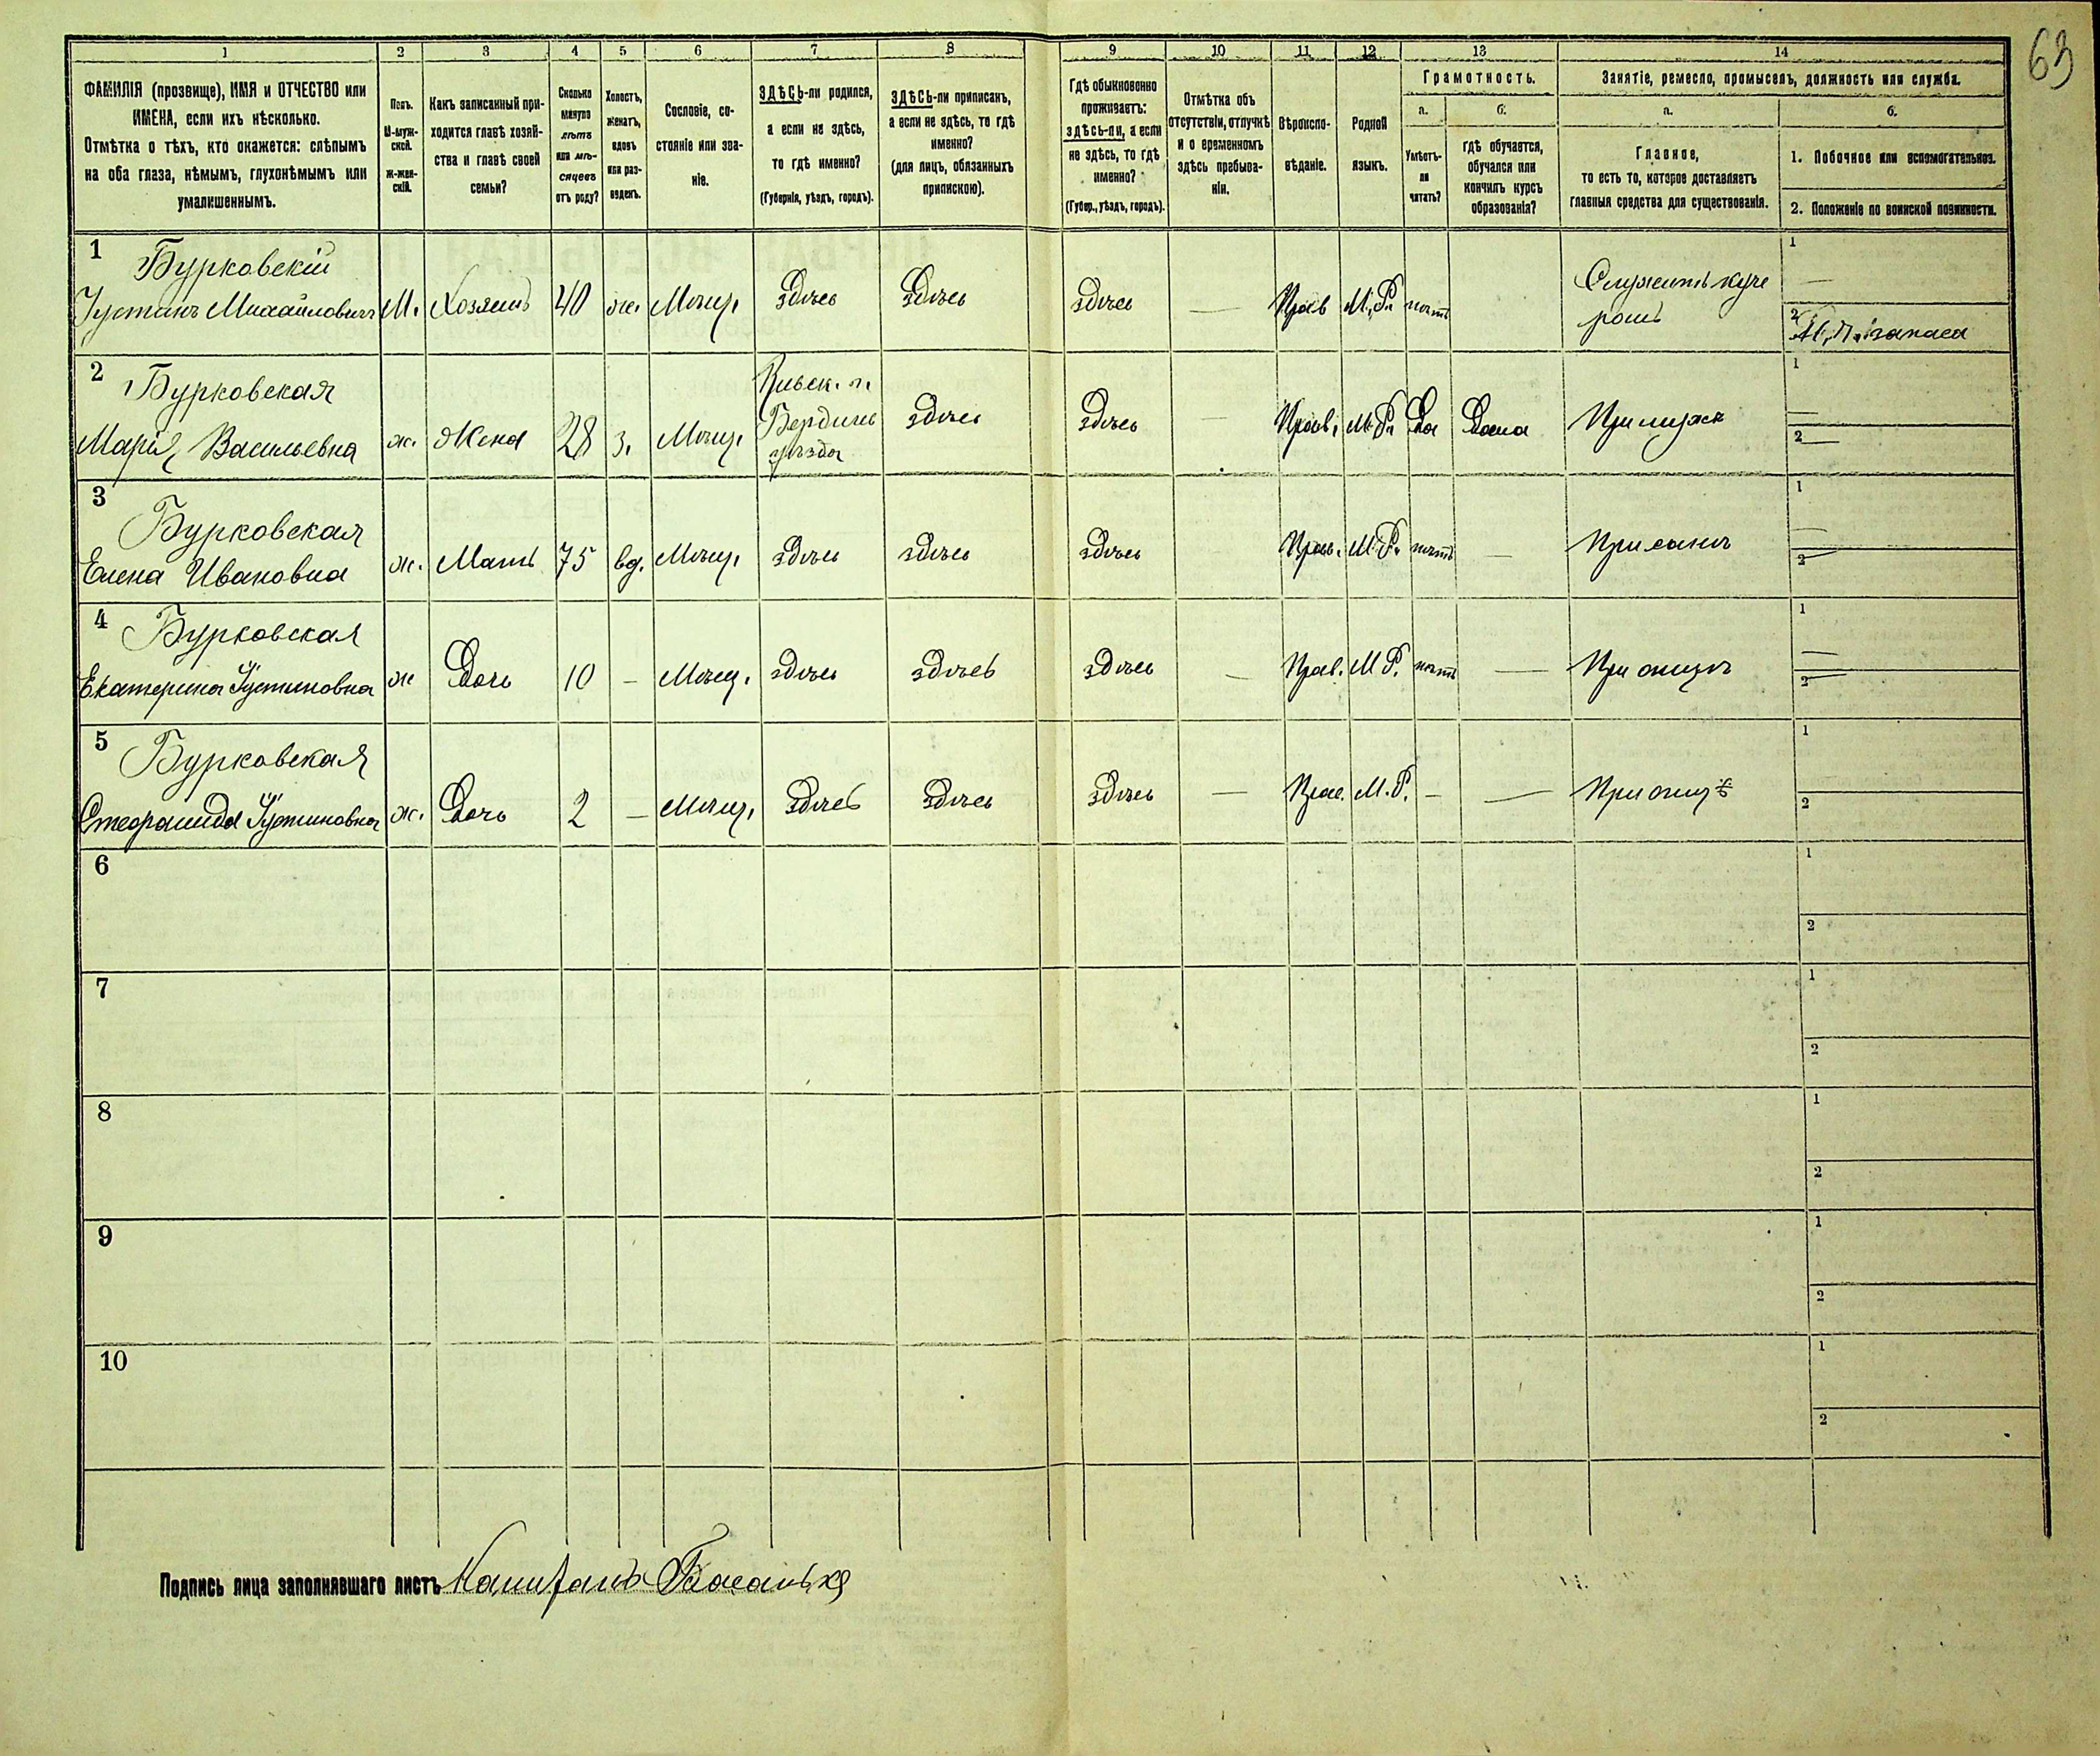 69
1 2 3 4 5 6 7 8 9 10 11 12 13 14
ФАМИЛІЯ (прозвище), ИМЯ и ОТЧЕСТВО или
ИМЕНА, если ихъ нѣсколько.
Отмѣтка о тѣхъ, кто окажется: слѣпымъ
на оба глаза, нѣмымъ, глухонѣмымъ или
умалишеннымъ.
Полъ.
М-муж-
ской.
Ж-жен-
скій.
Какъ записанный при-
ходится главѣ хозяй-
ства и главѣ своей
семьи?
Сколько
минуло
лѣтъ
или мѣ-
сяцевъ
отъ роду?
Холостъ,
женатъ,
вдовъ
или раз-
веденъ.
Сословіе, со-
стояніе или зва-
ніе.
ЗДѢСЬ-ли родился,
а если не здѣсь,
то гдѣ именно?
(Губернія, уѣздъ, городъ).
ЗДѢСЬ-ли приписанъ,
а если не здѣсь, то гдѣ
именно?
(для лицъ, обязанныхъ
припискою).
Гдѣ обыкновенно
проживаетъ:
здѣсь-ли, а если
не здѣсь, то гдѣ
именно?
(Губер., уѣздъ, городъ).
Отмѣтка объ
отсутствіи, отлучкѣ
и о временномъ
здѣсь пребыва-
ніи.
Вѣроиспо-
вѣданіе.
Родной
языкъ.
Грамотность.
а.
Умѣетъ-
ли
читать?
б.
гдѣ обучается,
обучался или
кончилъ курсъ
образованія?
Занятіе, ремесло, промыселъ, должность или служба.
а.
Главное,
то есть то, которое доставляетъ
главныя средства для существованія.
б.
1. Побочное или вспомогательное.
2. Положеніе по воинской повинности.
1 Бурковскій
Густинъ Михайловичъ М. Хозяинъ 40 ж. Мѣщ. здѣсь здѣсь здѣсь — Прав М. Р. нѣтъ Служитъ куче
ромъ
1 —
2 запаса
2 Бурковская
Марія Васильевна ж. Жена 28 з. Мѣщ. Кіевск. г.
Бердич
уѣзда
здѣсь здѣсь — Прав. М. Р. Да Дома При мужѣ
1 —
2 —
3 Бурковская
Елена Ивановна ж. Мать 75 вд. Мѣщ. здѣсь здѣсь здѣсь Прав. М. Р. нѣтъ — При сынѣ
1 —
2 —
4 Бурковская
Екатерина Густиновна ж Дочь 10 — Мѣщ. здѣсь здѣсь здѣсь — Прав. М Р. нѣтъ — При отцѣ
1 —
2 —
5 Бурковская
Густиновна ж. Дочь 2 — Мѣщ. здѣсь здѣсь здѣсь — Прав. М. Р. — — При отцѣ
1
2
6 1
2
7 1
2
8 1
2
9 1
2
10 1
2
Подпись лица заполнявшаго листъ